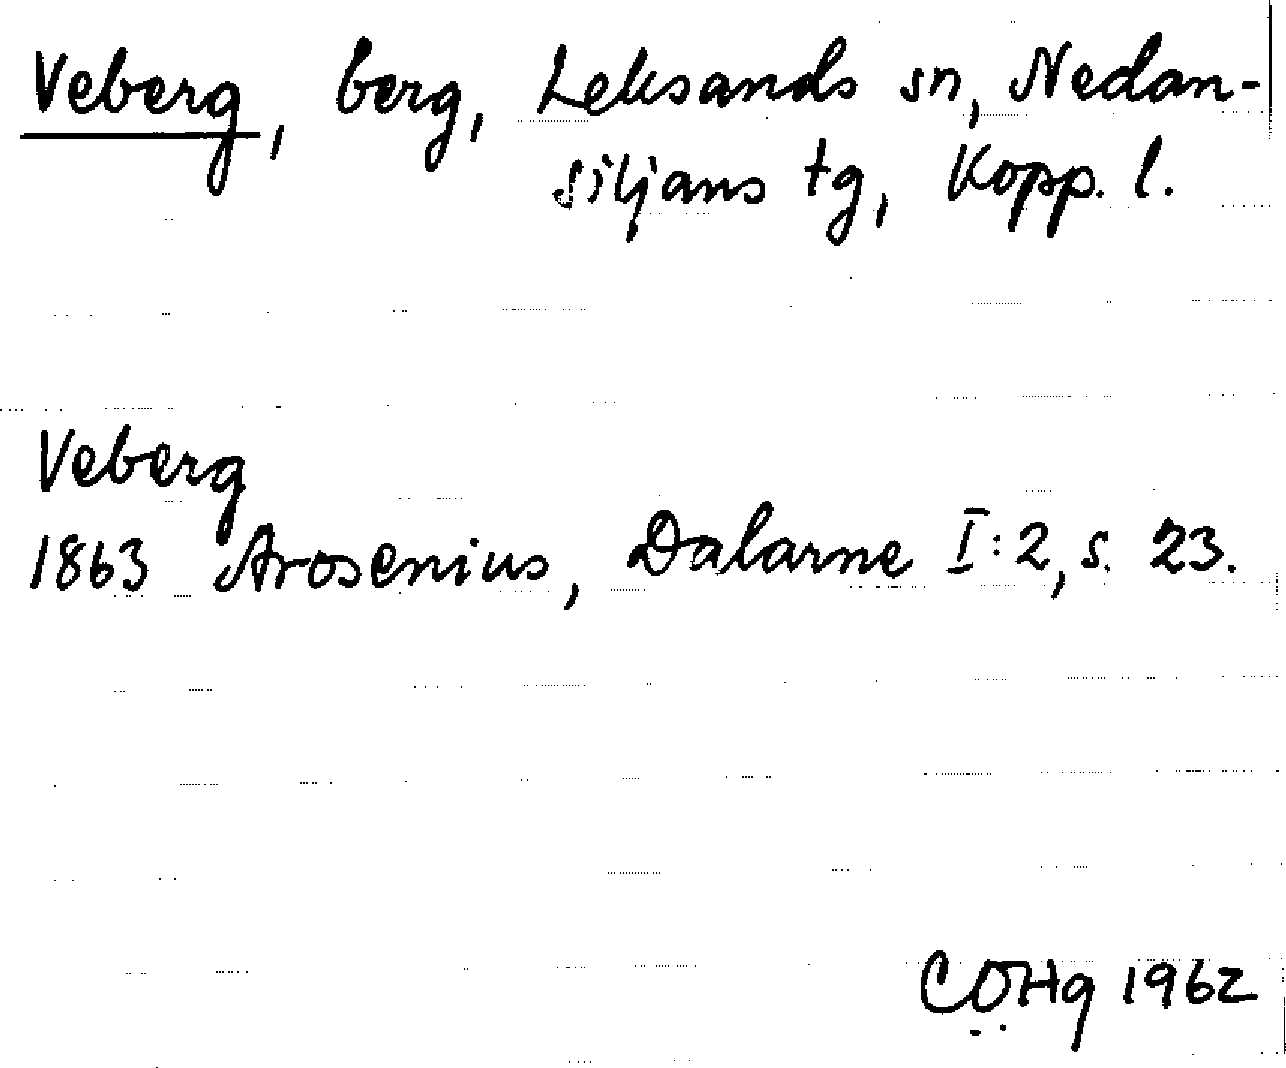 Veberg, berg, Leksands sn, Nedan-
siljans tg, Kopp. l.
Veberg
1863 Arosenius, Dalarne I:2, s. 23.
COHg 1962